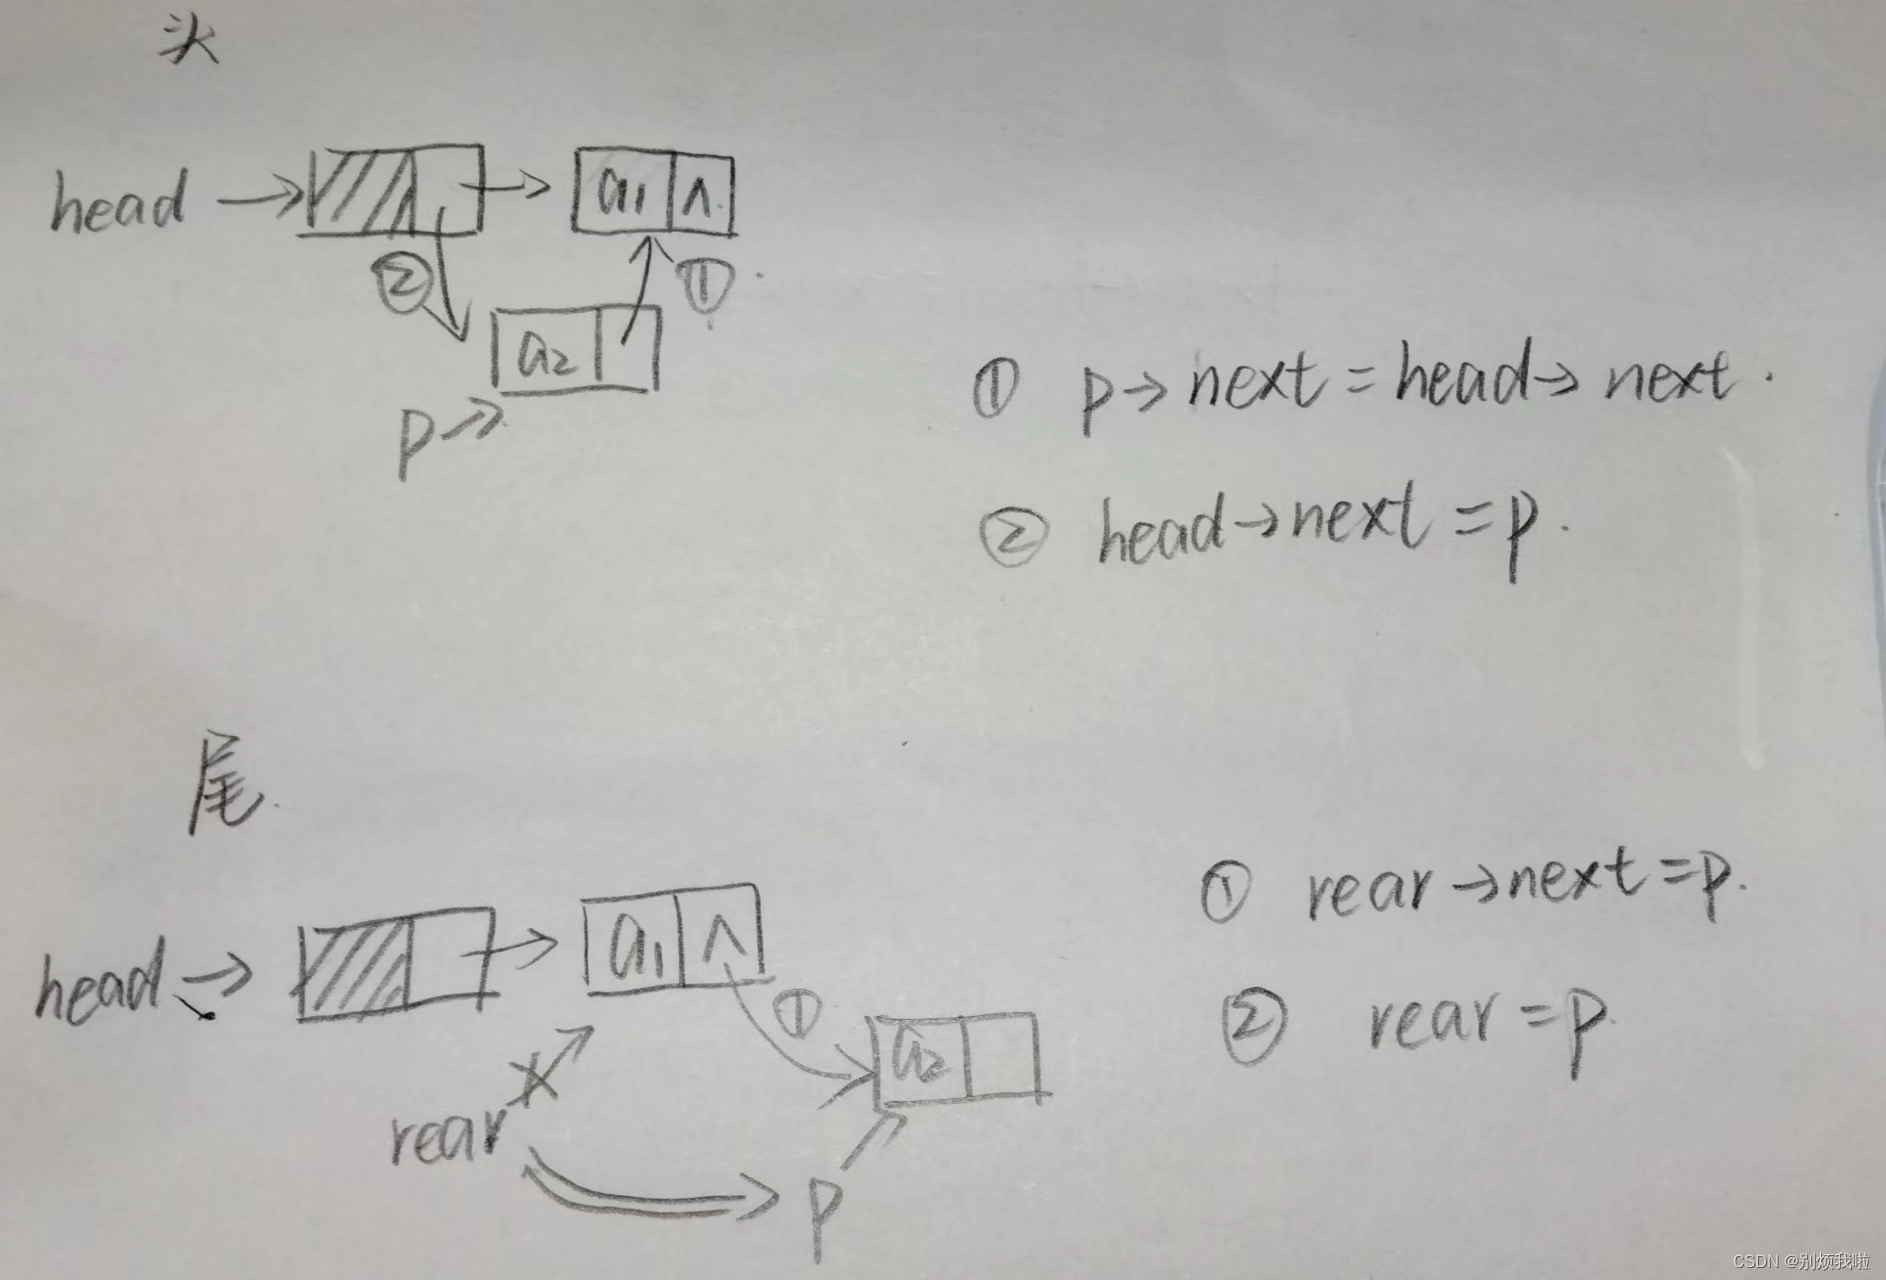 头
head → a₁ ∧
② ①
a₂
p →
① p→next = head→next.
② head→next = p.
尾
head → a₁ ∧
①
a₂
rear
p
① rear→next = p.
② rear = p.
CSDN @别烦我啦